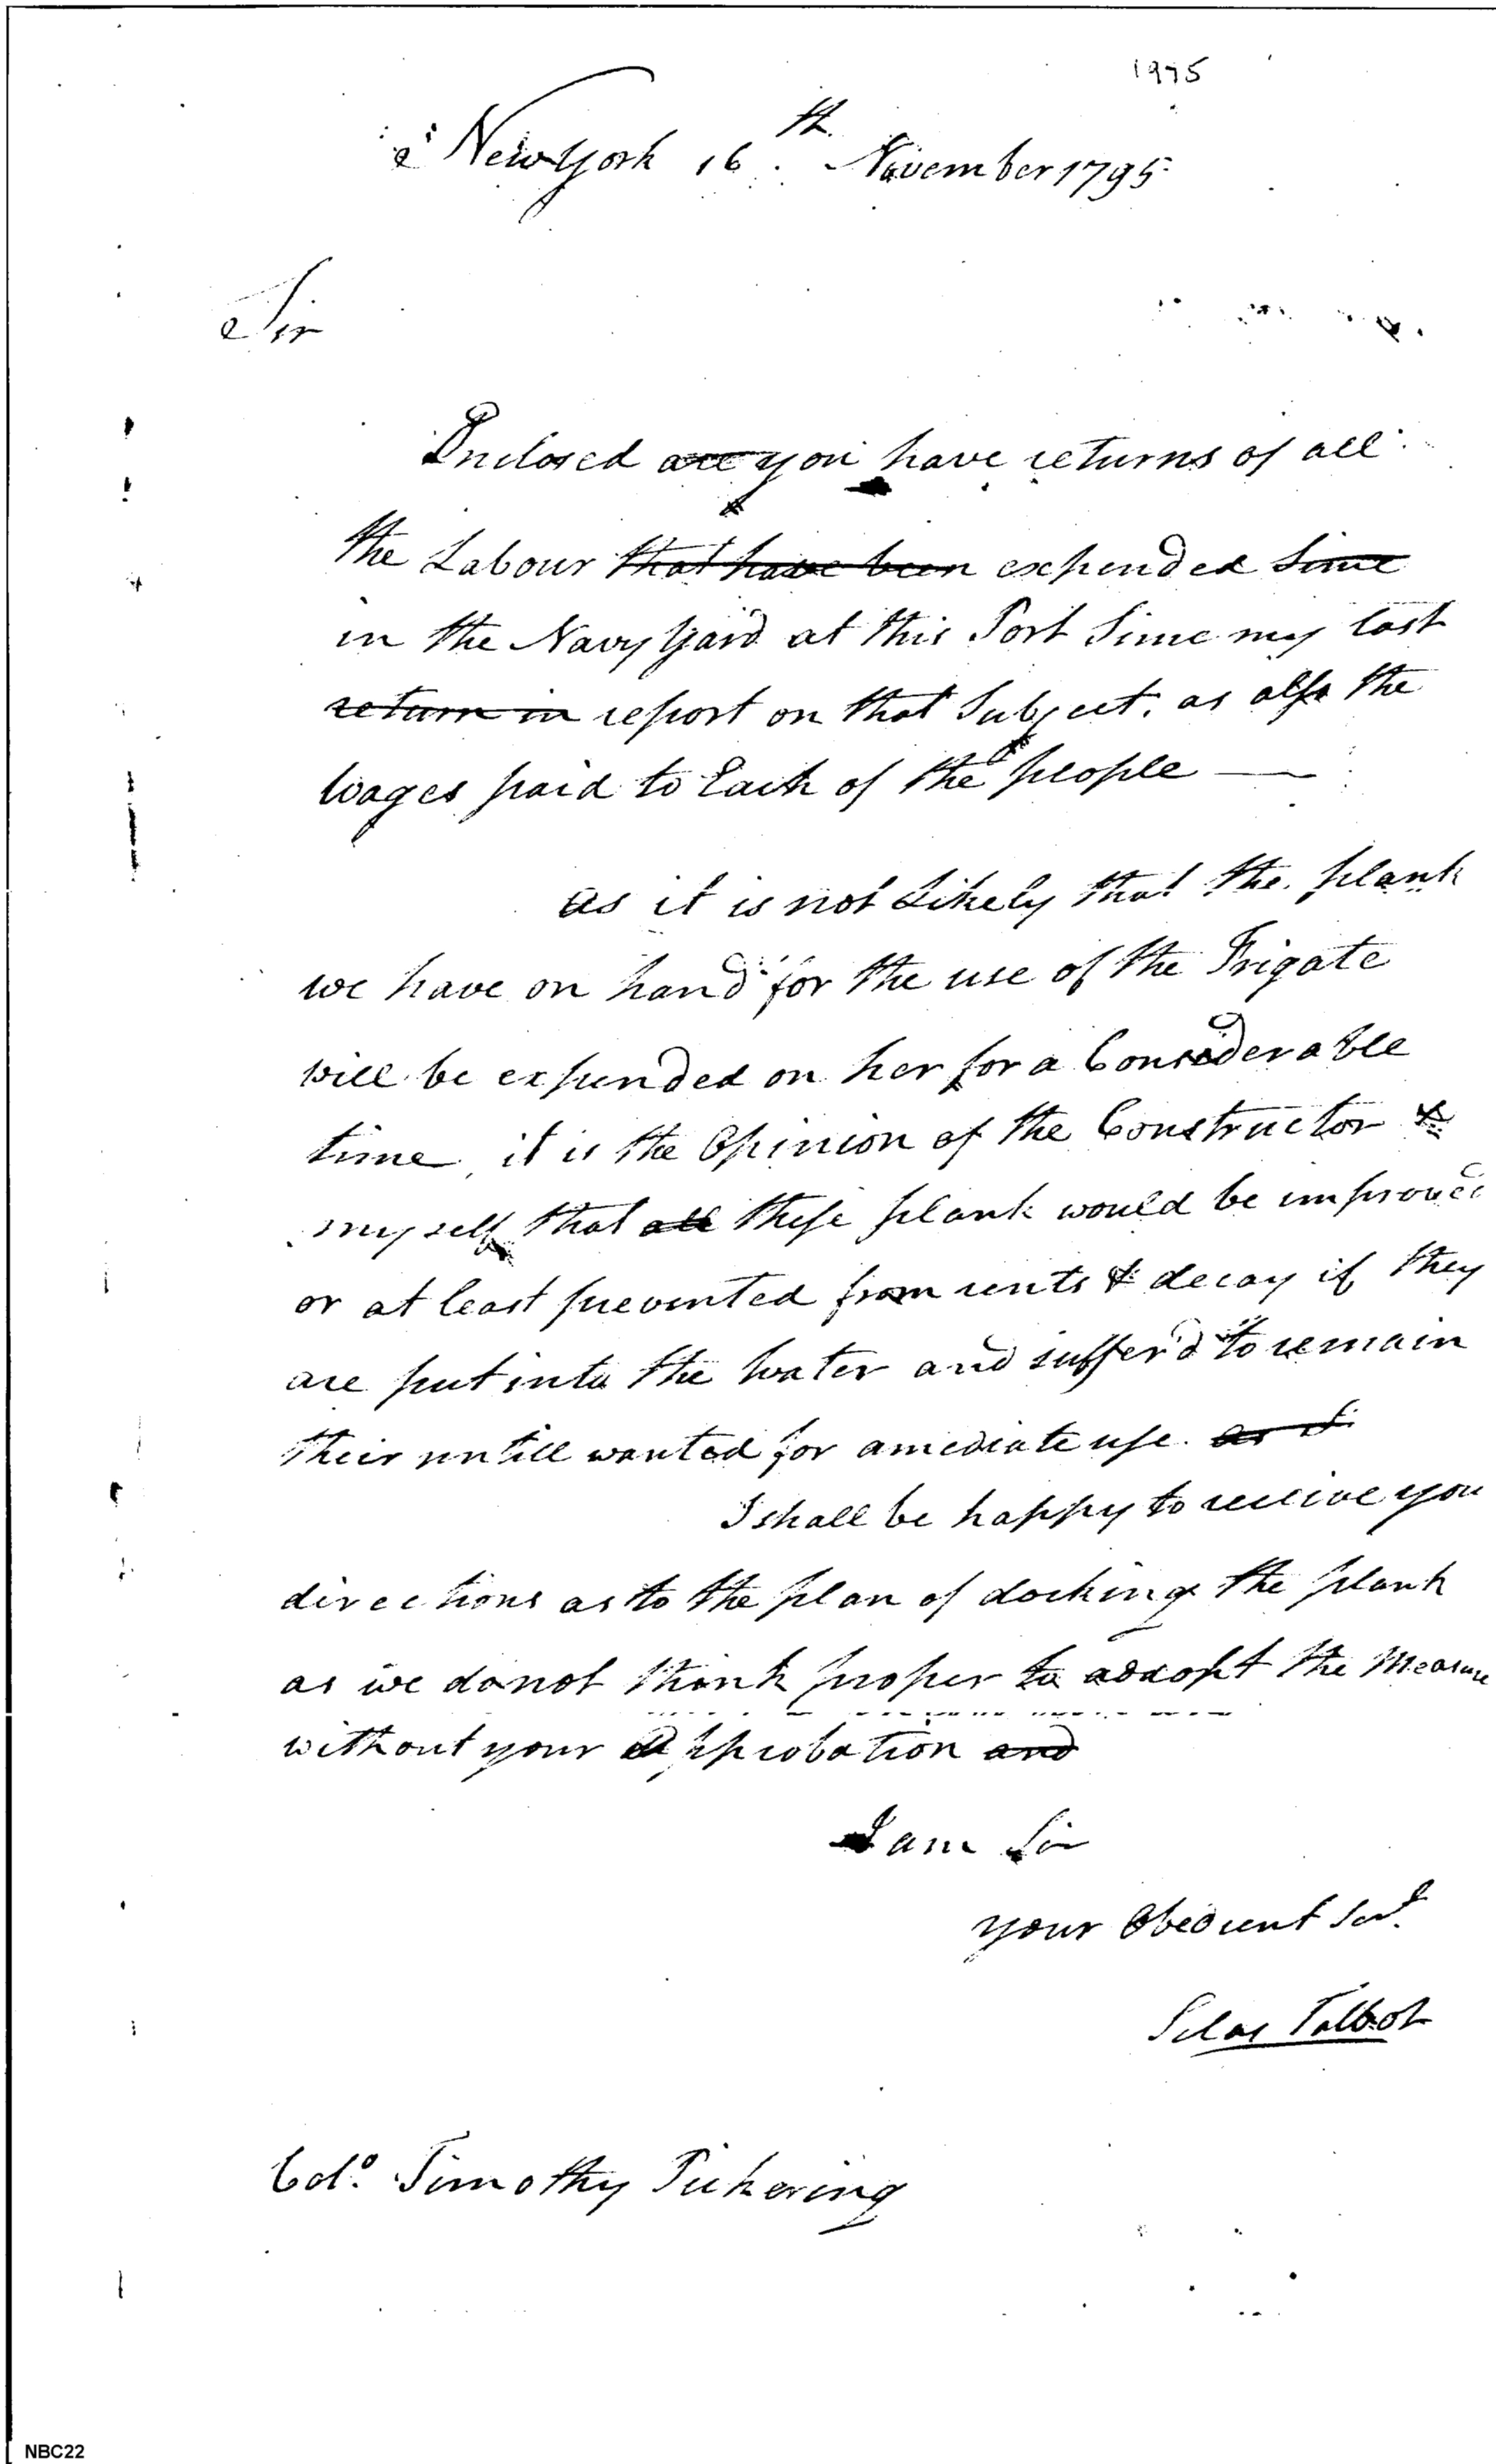 1975
New York 16th November 1795
Sir
Enclosed are you have returns of all
the Labour that have been expended Since
in the Navy Yard at this Port Since my last
return in report on that Subject, as also the
Wages paid to Each of the people —
as it is not Likely that the plank
we have on hand for the use of the Frigate
will be expended on her for a Considerable
time, it is the Opinion of the Constructor &
my self that all these plank would be improved
or at least prevented from rents & decay if they
are put into the Water and suffer'd to remain
their untill wanted for amediate use. as I
I shall be happy to receive you
directions as to the plan of docking the plank
as we do not think proper to addopt the Measure
without your Approbation and
I am Sir
your Obedient Sert
Silas Talbot
Colo. Timothy Pickering
NBC22